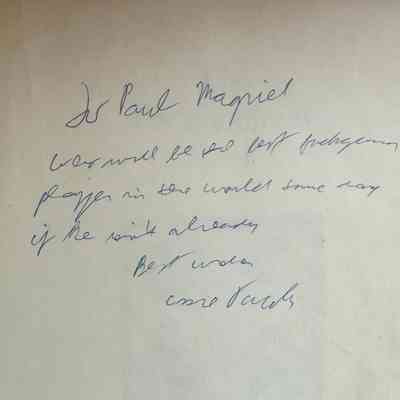 For Paul Magriel
who will be the best backgammon
player in the world some day
if he isn't already
Best wishes